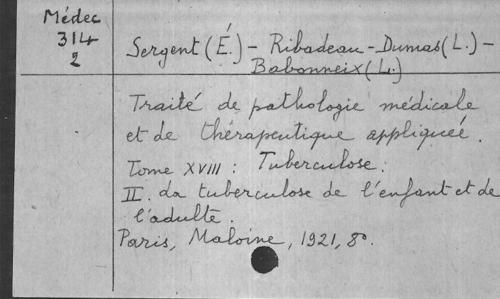 Médec
314
2
Sergent (É.) - Ribadeau-Dumas (L.) -
Babonneix (L.)
Traité de pathologie médicale
et de thérapeutique appliquée.
Tome XVIII : Tuberculose.
II. La tuberculose de l'enfant et de
l'adulte.
Paris, Maloine, 1921, 8°.